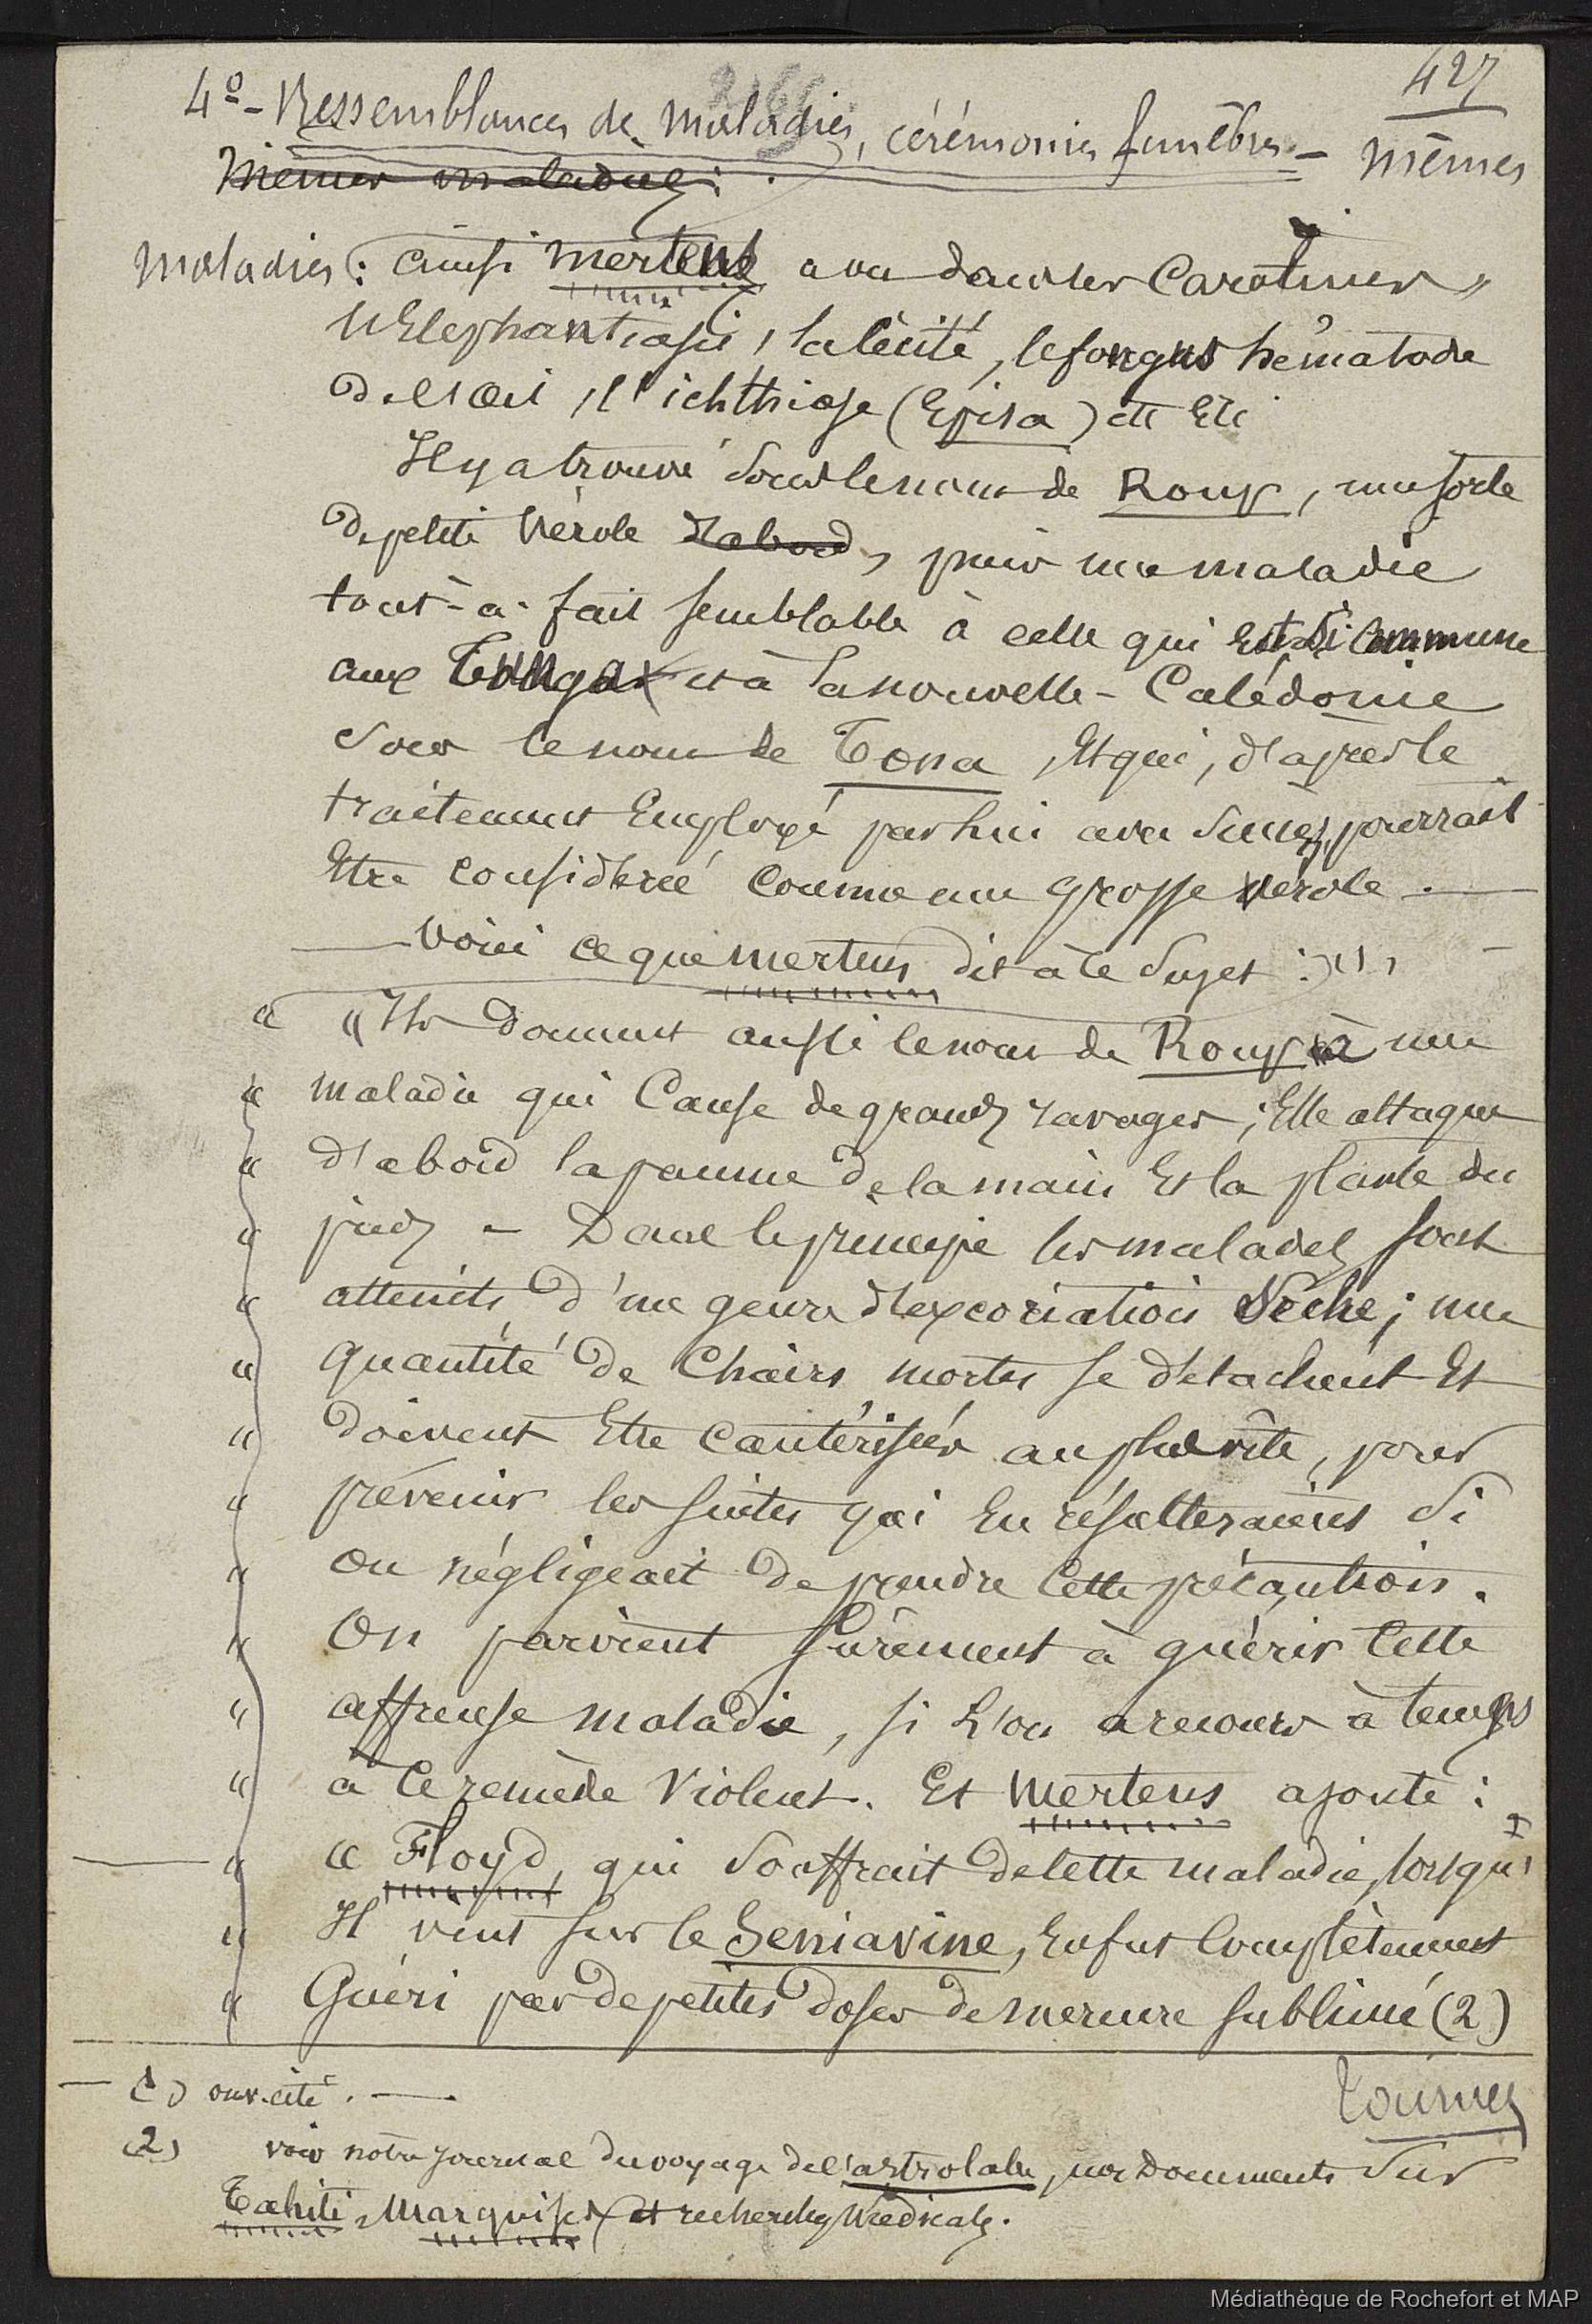 427
4º - Ressemblances de maladies, cérémonies funèbres = mêmes
Mêmes maladies :
maladies : ainsi Mertens a vu dans les Carolines
l'Elephantiasis, la cécité, le fongus hématode
de l'œil, l'ichthiose (Episa) etc Etc
Il y a trouvé sous le nom de Roup, une sorte
de petite vérole d'abord, puis une maladie
tout-à-fait semblable à celle qui est si commune
aux Tunga et à la nouvelle-Calédonie
sous le nom de Tona, Et qui, d'après le
traitement Employé par lui avec succès, pourrait
Etre considérée comme une grosse vérole. —
— Voici ce que mertens dit à ce sujet : (1)
« "Ils donnent aussi le nom de Roup à une
« maladie qui Cause de grands ravages ; Elle attaque
« d'abord la paume de la main Et la plante des
« pieds - Dans le principe les malades sont
« atteints d'un genre d'excoriation Sèche ; une
« quantité de Chairs mortes se détachent Et
« doivent Etre Cautérisées au plus vîte, pour
« prévenir les suites qui En résulteraient Si
« on négligeait de prendre Cette précaution.
« On parvient sûrement à guérir Cette
« affreuse maladie, si l'on a recours à temps
« à Ce remède Violent. Et Mertens ajoute :
— « « Floyd, qui Souffrait de cette maladie, lorsqu'
« Il vint sur le Seniavine, En fut Complètement
« Guéri par de petites doses de mercure sublimé (2)
— (1) ouv. cité. —
Tournez
(2) voir notre journal du voyage de l'astrolabe, nos Documents Sur
Taehiti, Marquises, et recherches médicales.
Médiathèque de Rochefort et MAP